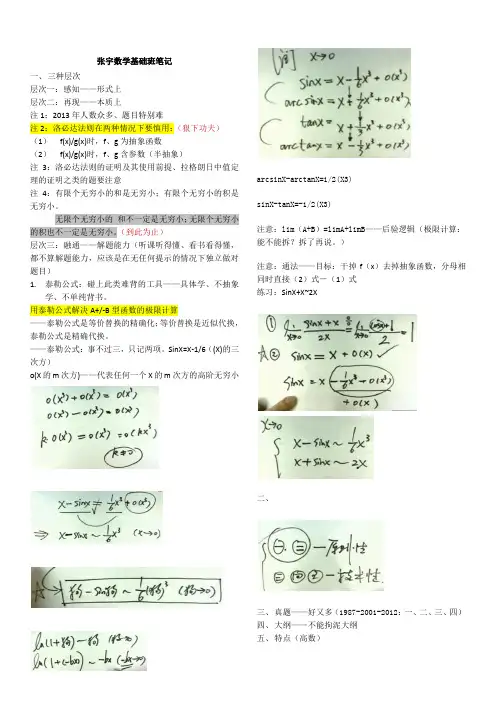 张宇数学基础班笔记
一、三种层次
层次一：感知——形式上
层次二：再现——本质上
注1：2013年人数众多、题目特别难
注2：洛必达法则在两种情况下要慎用：（狠下功夫）
（1） f(x)/g(x)时，f、g为抽象函数
（2） f(x)/g(x)时，f、g含参数（半抽象）
注3：洛必达法则的证明及其使用前提、拉格朗日中值定
理的证明之类的题要注意
注4：有限个无穷小的和是无穷小；有限个无穷小的积是
无穷小。
无限个无穷小的 和不一定是无穷小；无限个无穷小
的积也不一定是无穷小。（到此为止）
层次三：融通——解题能力（听课听得懂、看书看得懂，
都不算解题能力，应该是在无任何提示的情况下独立做对
题目）
1. 泰勒公式：碰上此类难背的工具——具体学、不抽象
学、不单纯背书。
用泰勒公式解决A+/-B型函数的极限计算
——泰勒公式是等价替换的精确化；等价替换是近似代换，
泰勒公式是精确代换。
——泰勒公式：事不过三，只记两项。SinX=X-1/6（(X)的三
次方）
o(X的m次方)——代表任何一个X的m次方的高阶无穷小
o(x³)+o(x³)=o(x³)
o(x³)-o(x³)=o(x³)
k·o(x³)=o(x³)=o(kx³)
k≠0
x-sinx = 1/6 x³+o(x³)
⇒ x-sinx ~ 1/6 x³ (x→0)
狗-sin狗 ~ 1/6 (狗)³ (狗→0)
ln(1+狗)~狗 (狗→0)
ln(1+(-bx)) ~ -bx (-bx→0)
x→0
sinx = x - 1/6 x³ + o(x³)
arcsinx = x + 1/6 x³ + o(x³)
tanx = x + 1/3 x³ + o(x³)
arctanx = x - 1/3 x³ + o(x³)
arcsinX-arctanX=1/2(X3)
sinX-tanX=-1/2(X3)
注意：lim（A+B）=limA+limB——后验逻辑（极限计算：
能不能拆？拆了再说。）
注意：通法——目标：干掉f（x）去掉抽象函数，分母相
同时直接（2）式－（1）式
练习：SinX+X~2X
① lim x→0 (sinx+x)/2x = lim x→0 (cosx+1)/2 = 1
② sinx = x + o(x)
sinx = x - 1/6 x³ + o(x³)
+o(x)
x→0
x-sinx ~ 1/6 x³
x+sinx ~ 2x
二、
一、三—原则性
二 四 五—技术性
三、真题——好又多（1987-2001-2012：一、二、三、四）
四、大纲——不能拘泥大纲
五、特点（高数）